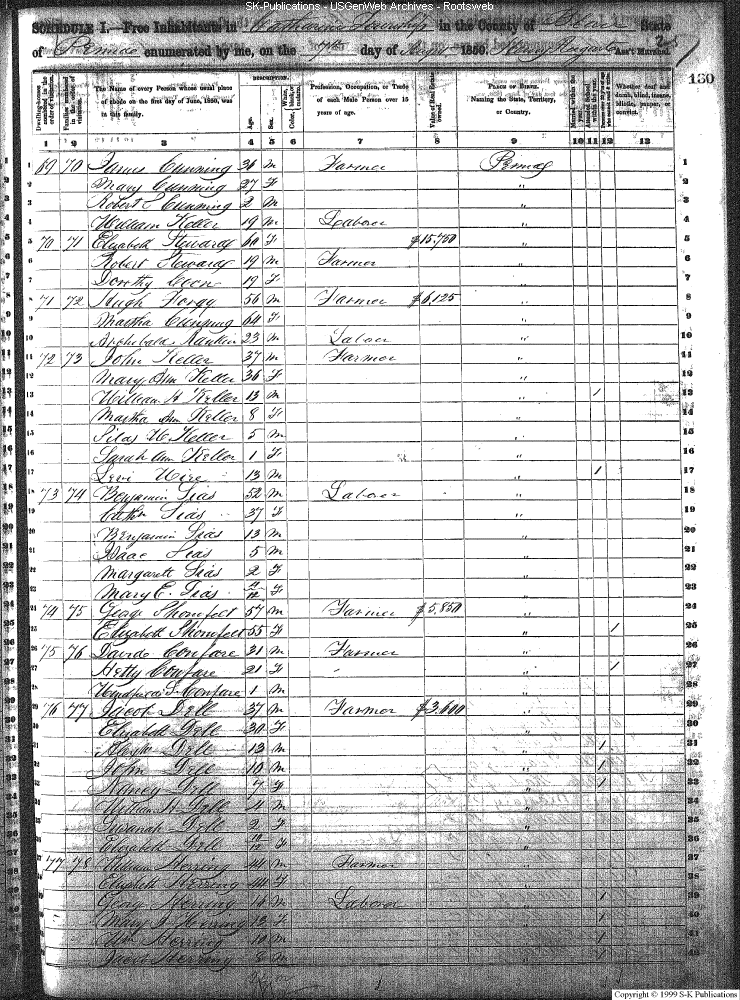 SK-Publications - USGenWeb Archives - Rootsweb
SCHEDULE I.—Free Inhabitants in Catharine Township in the County of State
of Penna enumerated by me, on the 7th day of August 1850. Ass't Marshal.
130
DESCRIPTION.
Dwelling-houses numbered in the order of visitation.
Families numbered in the order of visitation.
The Name of every Person whose usual place of abode on the first day of June, 1850, was in this family.
Age.
Sex.
Color,
Profession, Occupation, or Trade of each Male Person over 15 years of age.
Value of Real Estate owned.
PLACE OF BIRTH. Naming the State, Territory, or Country.
Married within the year.
Attended School within the year.
Whether deaf and dumb, blind, insane, idiotic, pauper, or convict.
1 2 3 4 5 6 7 8 9 10 11 12 13
1 69 70 James Cunning 36 M Farmer Penna 1
2 Mary Cunning 27 F " 2
3 Robert Cunning 2 M " 3
4 William Keller 19 M Laborer " 4
5 70 71 Elizabeth Stewards 60 F $15,750 " 5
6 Robert Stewards 19 M Farmer " 6
7 Dorothy 19 F " 7
8 71 72 Hugh 56 M Farmer $6,125 " 8
9 Martha Cunning 64 F " 9
10 Archibald Rankin 23 M Laborer " 10
11 72 73 John Keller 37 M Farmer " 11
12 Mary Ann Keller 36 F " 12
13 William H Keller 13 M " 1 13
14 Martha Ann Keller 8 F " 14
15 Silas W. Keller 5 M " 15
16 Sarah Ann Keller 1 F " 16
17 Levi 13 M " 1 17
18 73 74 Benjamin Lias 52 M Laborer " 18
19 Lias 37 F " 19
20 Benjamin Lias 13 M " 20
21 Isaac Lias 5 M " 21
22 Margarett Lias 2 F " 22
23 Mary E. Lias F " 23
24 74 75 George 57 M Farmer $5,850 " 24
25 Elizabeth 55 F " 1 25
26 75 76 David Confare 31 M Farmer " 26
27 Hetty Confare 21 F " 1 27
28 Confare 1 M " 28
29 76 77 Jacob Dell 37 M Farmer $3,600 " 29
30 Elizabeth Dell 30 F " 30
31 Dell 13 M " 1 31
32 John Dell 10 M " 1 32
33 Nancy Dell 7 F " 1 33
34 William H Dell 4 M " 34
35 Dell 2 F " 35
36 Elizabeth Dell 10/12 F " 36
37 77 78 William Herring 44 M Farmer " 37
38 Elizabeth Herring 44 F " 38
39 George Herring Laborer " 1 39
40 Mary Herring 13 F " 1 40
Wm Herring 10 M " 1
Jacob Herring 8 M " 1
Copyright © 1999 S-K Publications